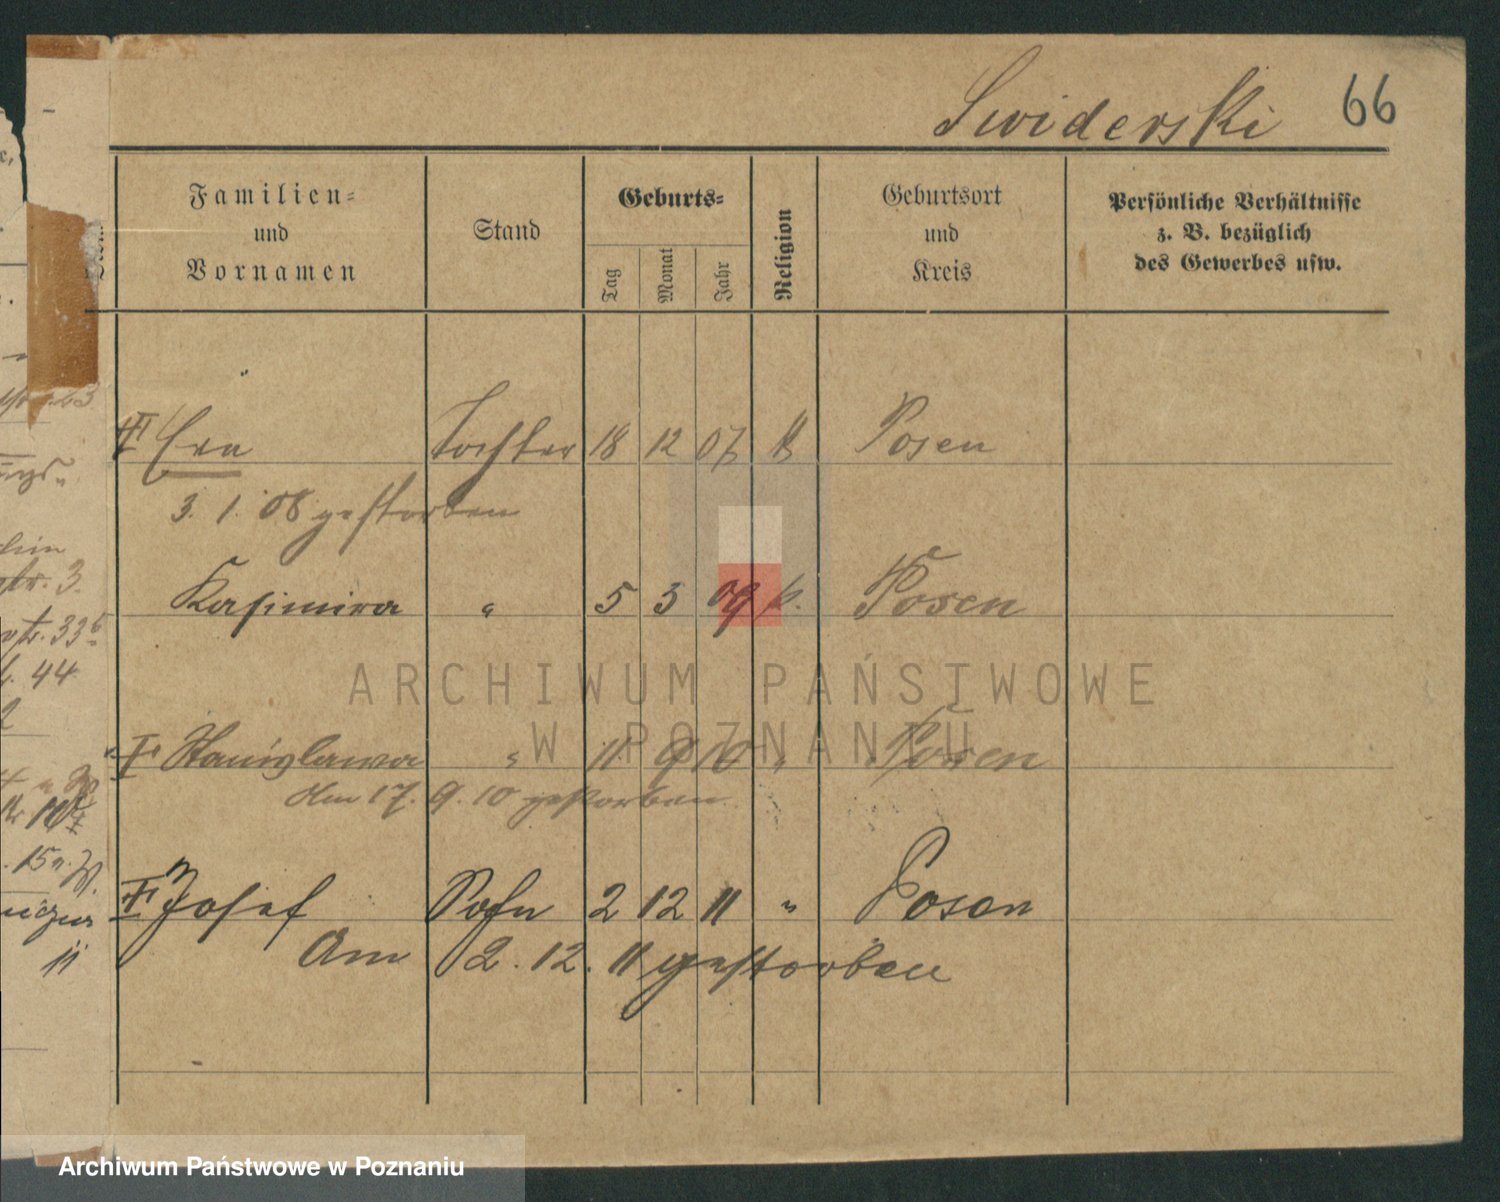 Swiderski 66
Familien-
und
Vornamen
Stand
Geburts-
Tag
Monat
Jahr
Religion
Geburtsort
und
Kreis
Persönliche Verhältnisse
z. B. bezüglich
des Gewerbes usw.
Eva Tochter 18 12 07 K Posen
3. 1. 08 gestorben
Kasimira " 5 3 09 k. Posen
Stanislawa " 11 9 10 " Posen
Am 17. 9. 10 gestorben
Josef Sohn 2 12 11 " Posen
Am 2. 12. 11 gestorben
str. 3.
str. 33
44
11
ARCHIWUM PAŃSTWOWE
W POZNANIU
Archiwum Państwowe w Poznaniu